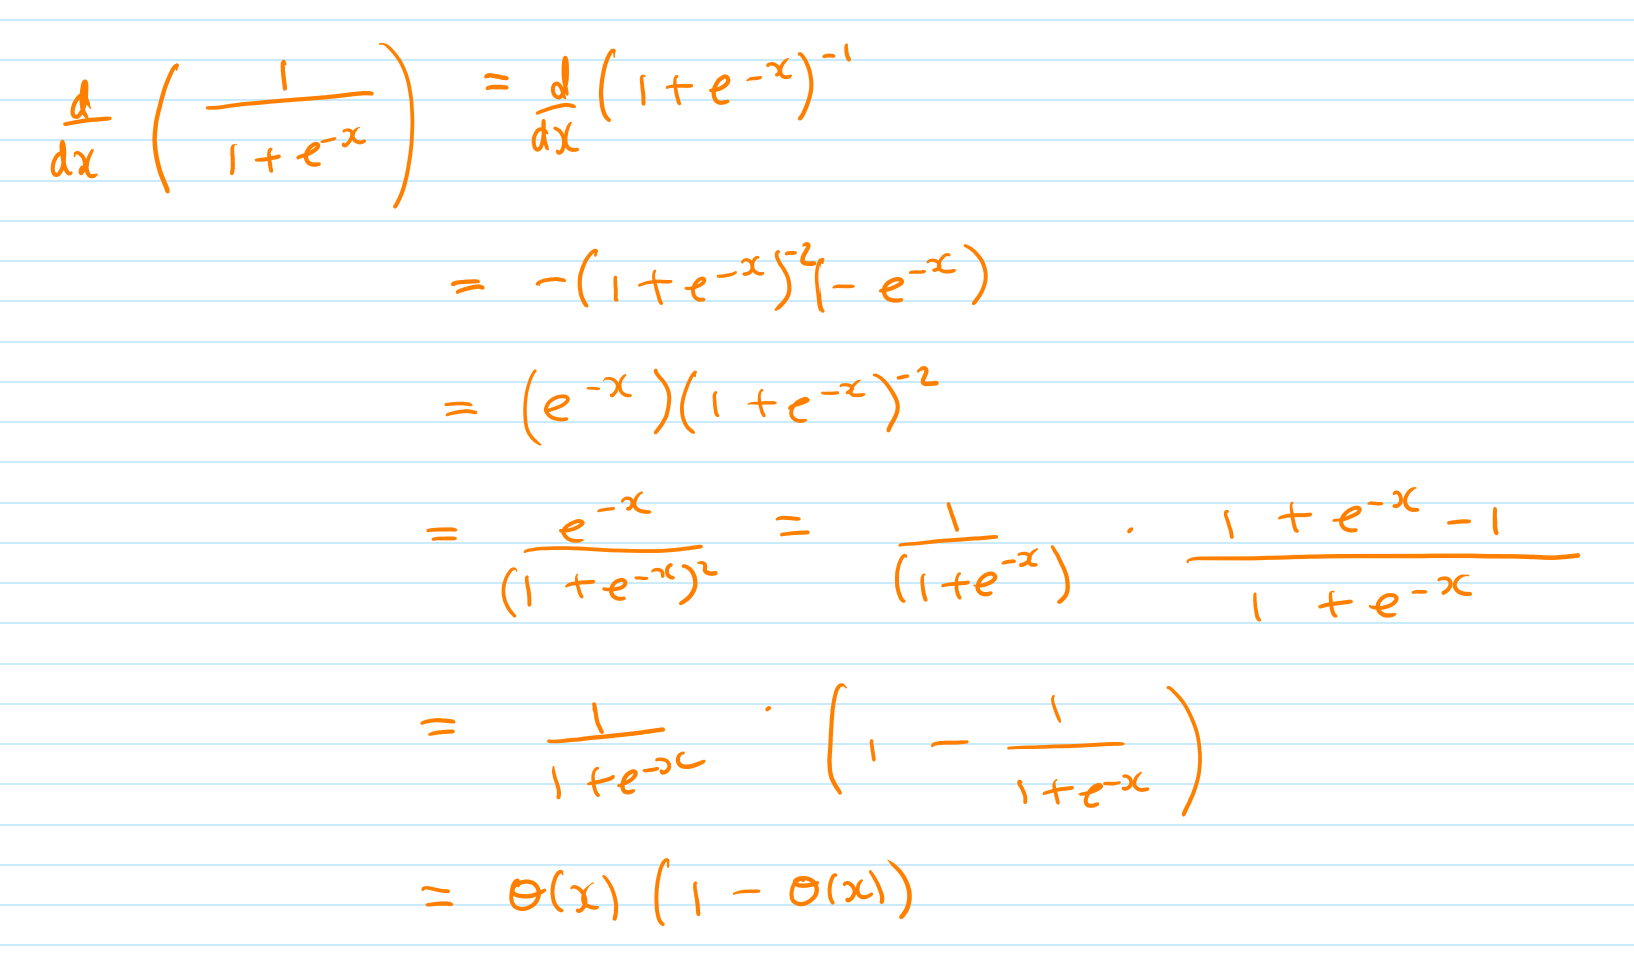 d/dx ( 1 / (1 + e^{-x}) ) = d/dx (1 + e^{-x})^{-1}
= -(1 + e^{-x})^{-2} (- e^{-x})
= (e^{-x})(1 + e^{-x})^{-2}
= e^{-x} / (1 + e^{-x})^2 = 1 / (1 + e^{-x}) · (1 + e^{-x} - 1) / (1 + e^{-x})
= 1 / (1 + e^{-x}) · ( 1 - 1 / (1 + e^{-x}) )
= Θ(x) (1 - Θ(x))